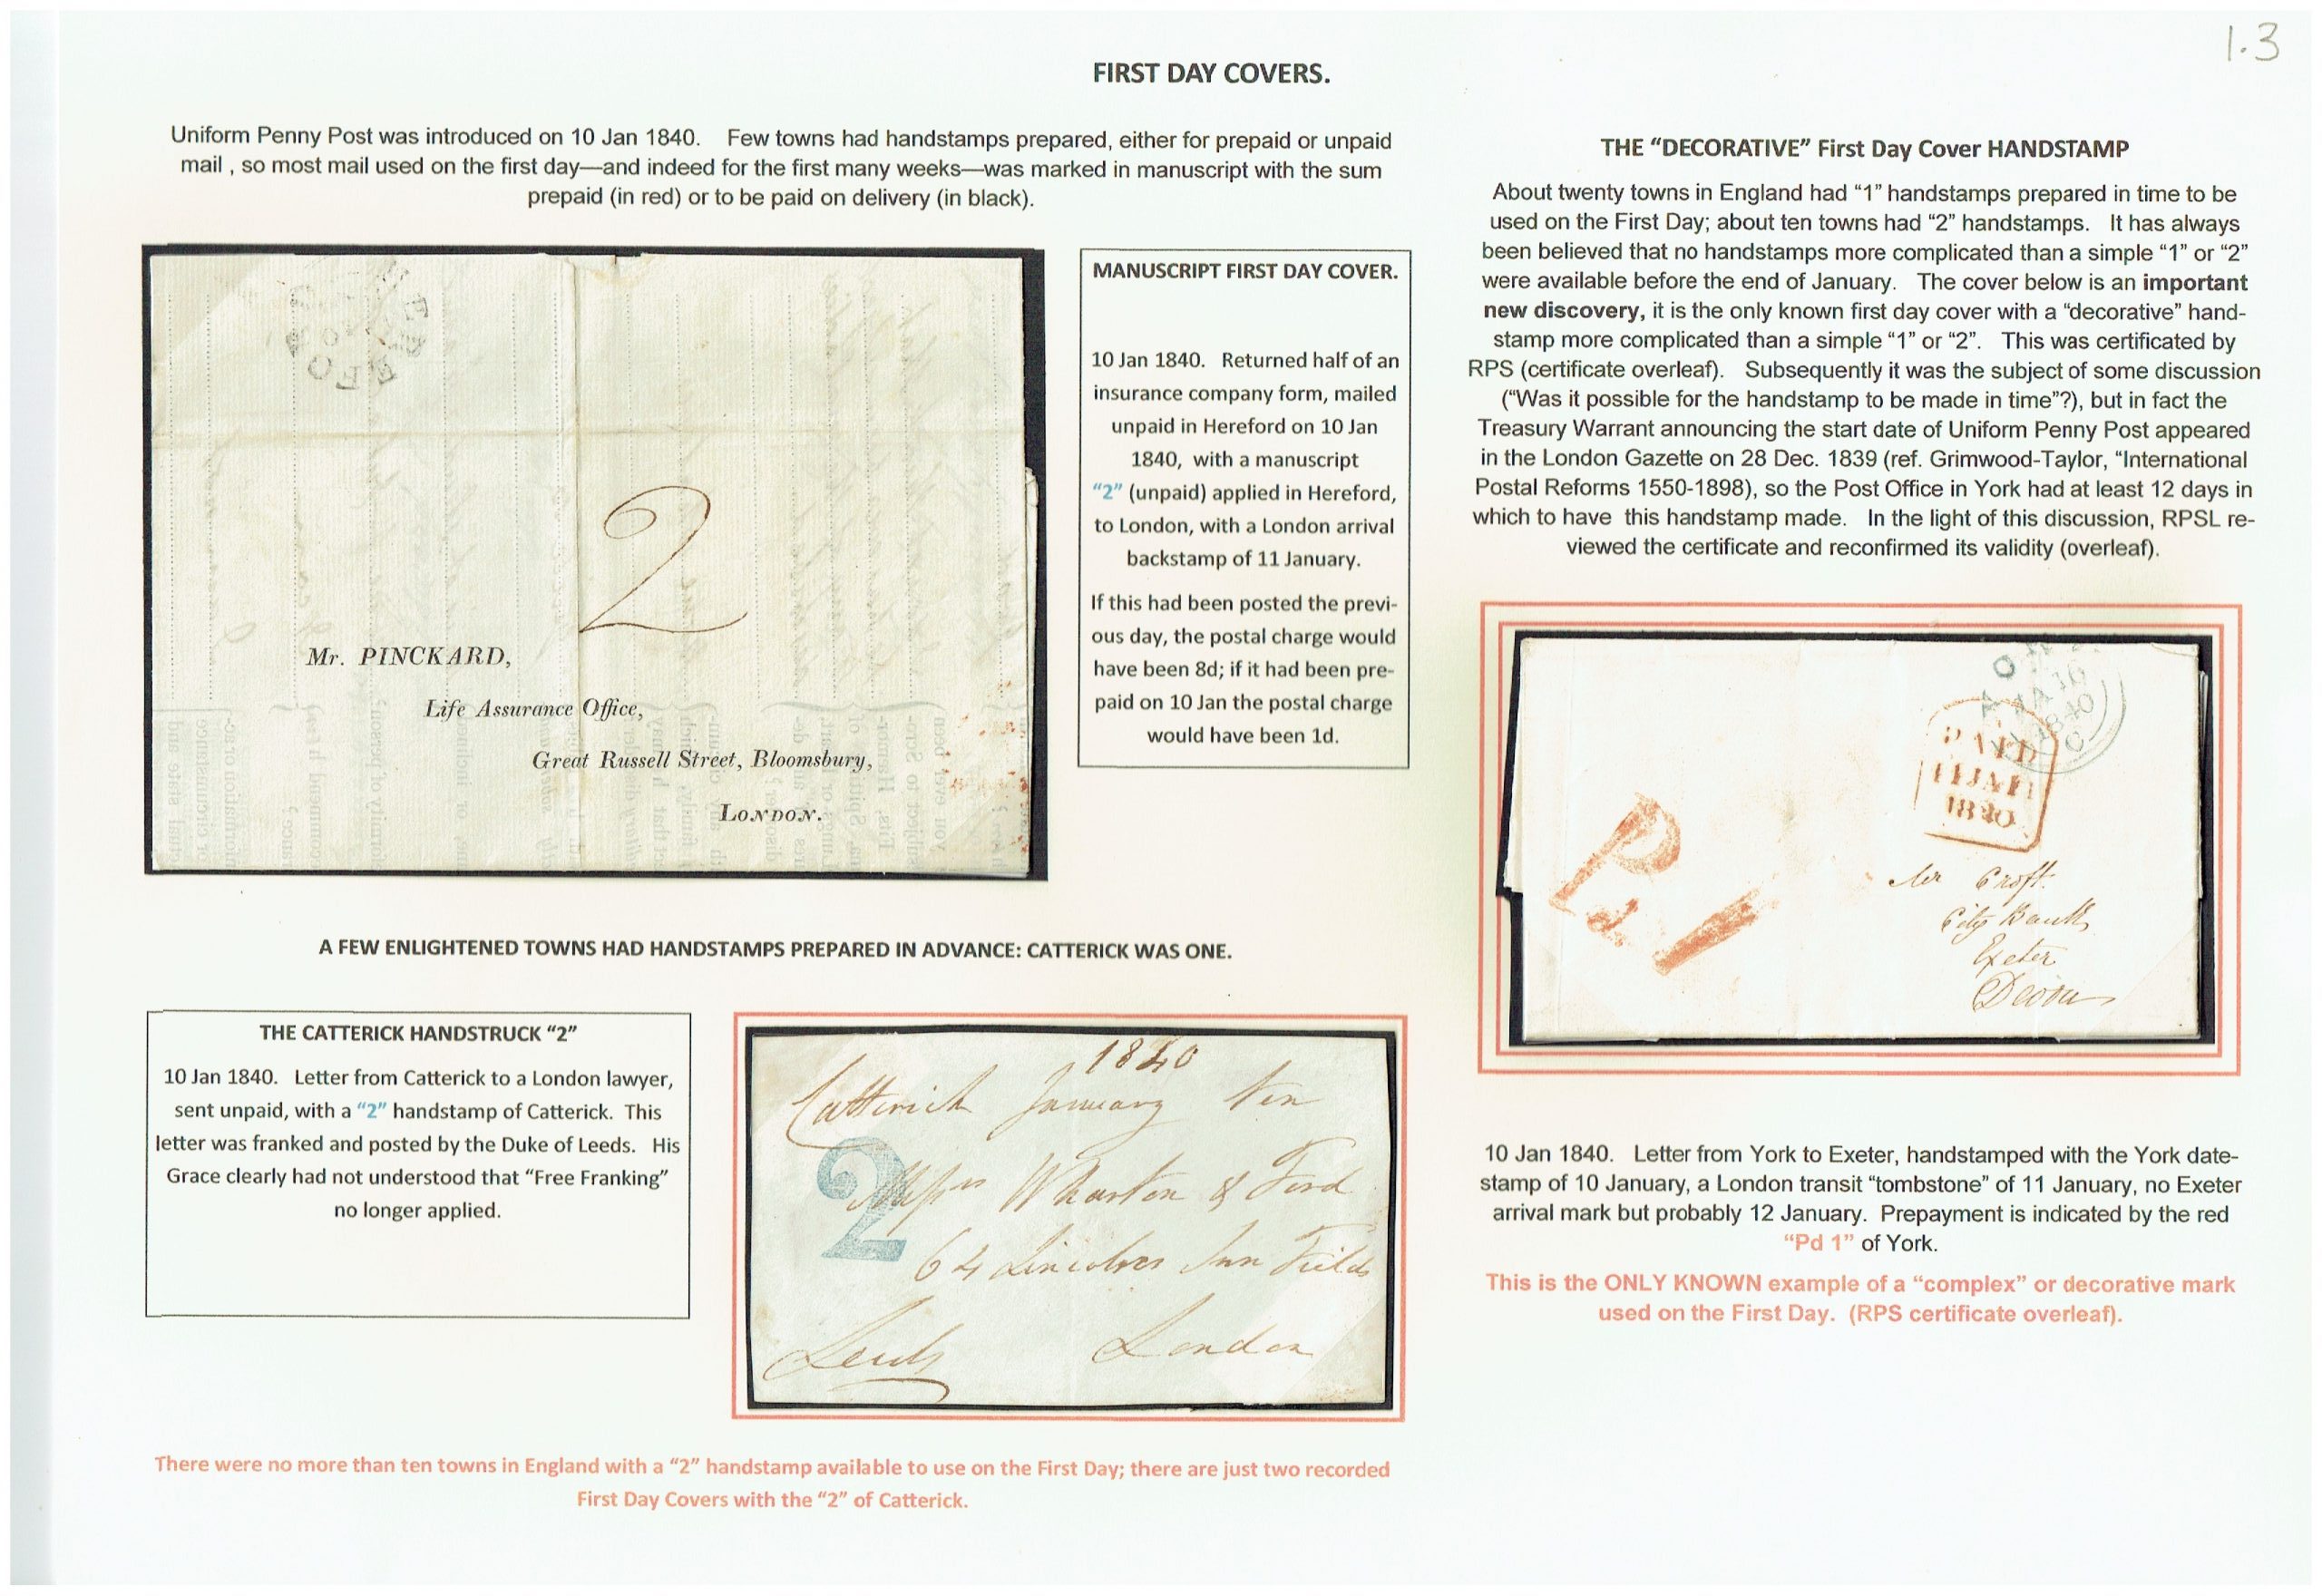 1.3
FIRST DAY COVERS.
Uniform Penny Post was introduced on 10 Jan 1840. Few towns had handstamps prepared, either for prepaid or unpaid
mail , so most mail used on the first day—and indeed for the first many weeks—was marked in manuscript with the sum
prepaid (in red) or to be paid on delivery (in black).
2
Mr. PINCKARD,
Life Assurance Office,
Great Russell Street, Bloomsbury,
LONDON.
MANUSCRIPT FIRST DAY COVER.
10 Jan 1840. Returned half of an
insurance company form, mailed
unpaid in Hereford on 10 Jan
1840, with a manuscript
“2” (unpaid) applied in Hereford,
to London, with a London arrival
backstamp of 11 January.
If this had been posted the previ-
ous day, the postal charge would
have been 8d; if it had been pre-
paid on 10 Jan the postal charge
would have been 1d.
A FEW ENLIGHTENED TOWNS HAD HANDSTAMPS PREPARED IN ADVANCE: CATTERICK WAS ONE.
THE CATTERICK HANDSTRUCK “2”
10 Jan 1840. Letter from Catterick to a London lawyer,
sent unpaid, with a “2” handstamp of Catterick. This
letter was franked and posted by the Duke of Leeds. His
Grace clearly had not understood that “Free Franking”
no longer applied.
1840
Catterick January ten
2
Messrs Wharton & Ford
64 Lincolns Inn Fields
Leeds London
There were no more than ten towns in England with a “2” handstamp available to use on the First Day; there are just two recorded
First Day Covers with the “2” of Catterick.
THE “DECORATIVE” First Day Cover HANDSTAMP
About twenty towns in England had “1” handstamps prepared in time to be
used on the First Day; about ten towns had “2” handstamps. It has always
been believed that no handstamps more complicated than a simple “1” or “2”
were available before the end of January. The cover below is an important
new discovery, it is the only known first day cover with a “decorative” hand-
stamp more complicated than a simple “1” or “2”. This was certificated by
RPS (certificate overleaf). Subsequently it was the subject of some discussion
(“Was it possible for the handstamp to be made in time”?), but in fact the
Treasury Warrant announcing the start date of Uniform Penny Post appeared
in the London Gazette on 28 Dec. 1839 (ref. Grimwood-Taylor, “International
Postal Reforms 1550-1898), so the Post Office in York had at least 12 days in
which to have this handstamp made. In the light of this discussion, RPSL re-
viewed the certificate and reconfirmed its validity (overleaf).
JA 10
1840
PAID
11 JA 11
1840
Pd 1
Mr Croft
City Bank
Exeter
Devon
10 Jan 1840. Letter from York to Exeter, handstamped with the York date-
stamp of 10 January, a London transit “tombstone” of 11 January, no Exeter
arrival mark but probably 12 January. Prepayment is indicated by the red
“Pd 1” of York.
This is the ONLY KNOWN example of a “complex” or decorative mark
used on the First Day. (RPS certificate overleaf).